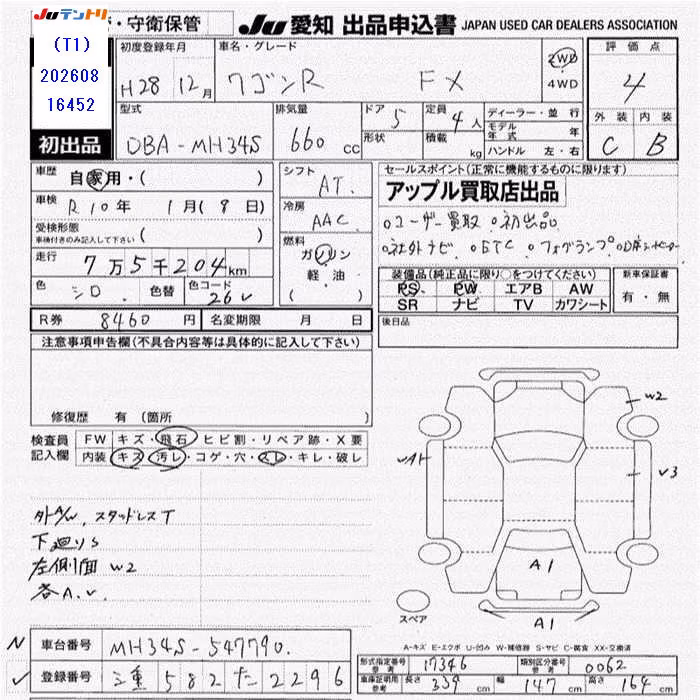 Juテントリ ・守衛保管 Ju 愛知 出品申込書 JAPAN USED CAR DEALERS ASSOCIATION
(T1)
202608
16452
初出品
初度登録年月 車名・グレード 評価点
H28 12月 ワゴンR FX 2WD 4WD 4
型式 排気量 ドア 5 定員 4人 ディーラー・並行 外装 内装
DBA-MH34S 660cc 形状 積載 kg モデル年式 年 C B
ハンドル 左・右
車歴 自家用・( ) シフト AT. セールスポイント(正常に機能するものに限ります)
アップル買取店出品
車検 R10年 1月(8日) 冷房 AAC
○ユーザー買取 ○初出品
受検形態 ( )
車検付きのみ記入して下さい
○社外ナビ ○ETC ○フォグランプ
走行 7万5千204km 燃料 ガソリン
軽・油
( )
装備品(純正品に限り○をつけてください) 新車保証書
PS PW エアB AW 有・無
SR ナビ TV カワシート
色 シロ 色替 色コード 26U
後日品
R券 8460円 名変期限 月 日
注意事項申告欄(不具合内容等は具体的に記入して下さい)
修復歴 有(箇所
検査員記入欄 FW キズ・飛石・ヒビ割・リペア跡・X要
内装 キズ・汚レ・コゲ・穴・スレ・キレ・破レ
外A/W、スタッドレスT
下廻りS
左側面 W2
各A.U
W2
U3
A1
スペア
A1
A-キズ E-エクボ U-凹み W-補修跡 S-サビ C-腐食 XX-交換済
N 車台番号 MH34S-547790.
登録番号 三重 582 た 2296
型式指定番号 参考 17346 類別区分番号 参考 0062
車庫証明用 参考 長さ 339cm 幅 147cm 高さ 164cm